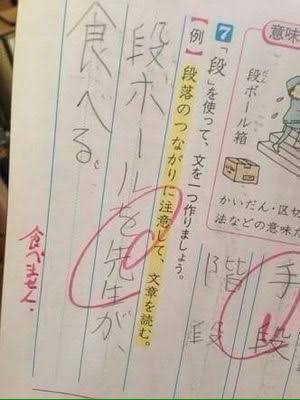 意味
段ボール箱
かいだん・区切
法などの意味だ
手段
階段
7 「段」を使って、文を一つ作りましょう。
【例】段落のつながりに注意して、文章を読む。
段ボールを先生が、
食べる。
食べません。